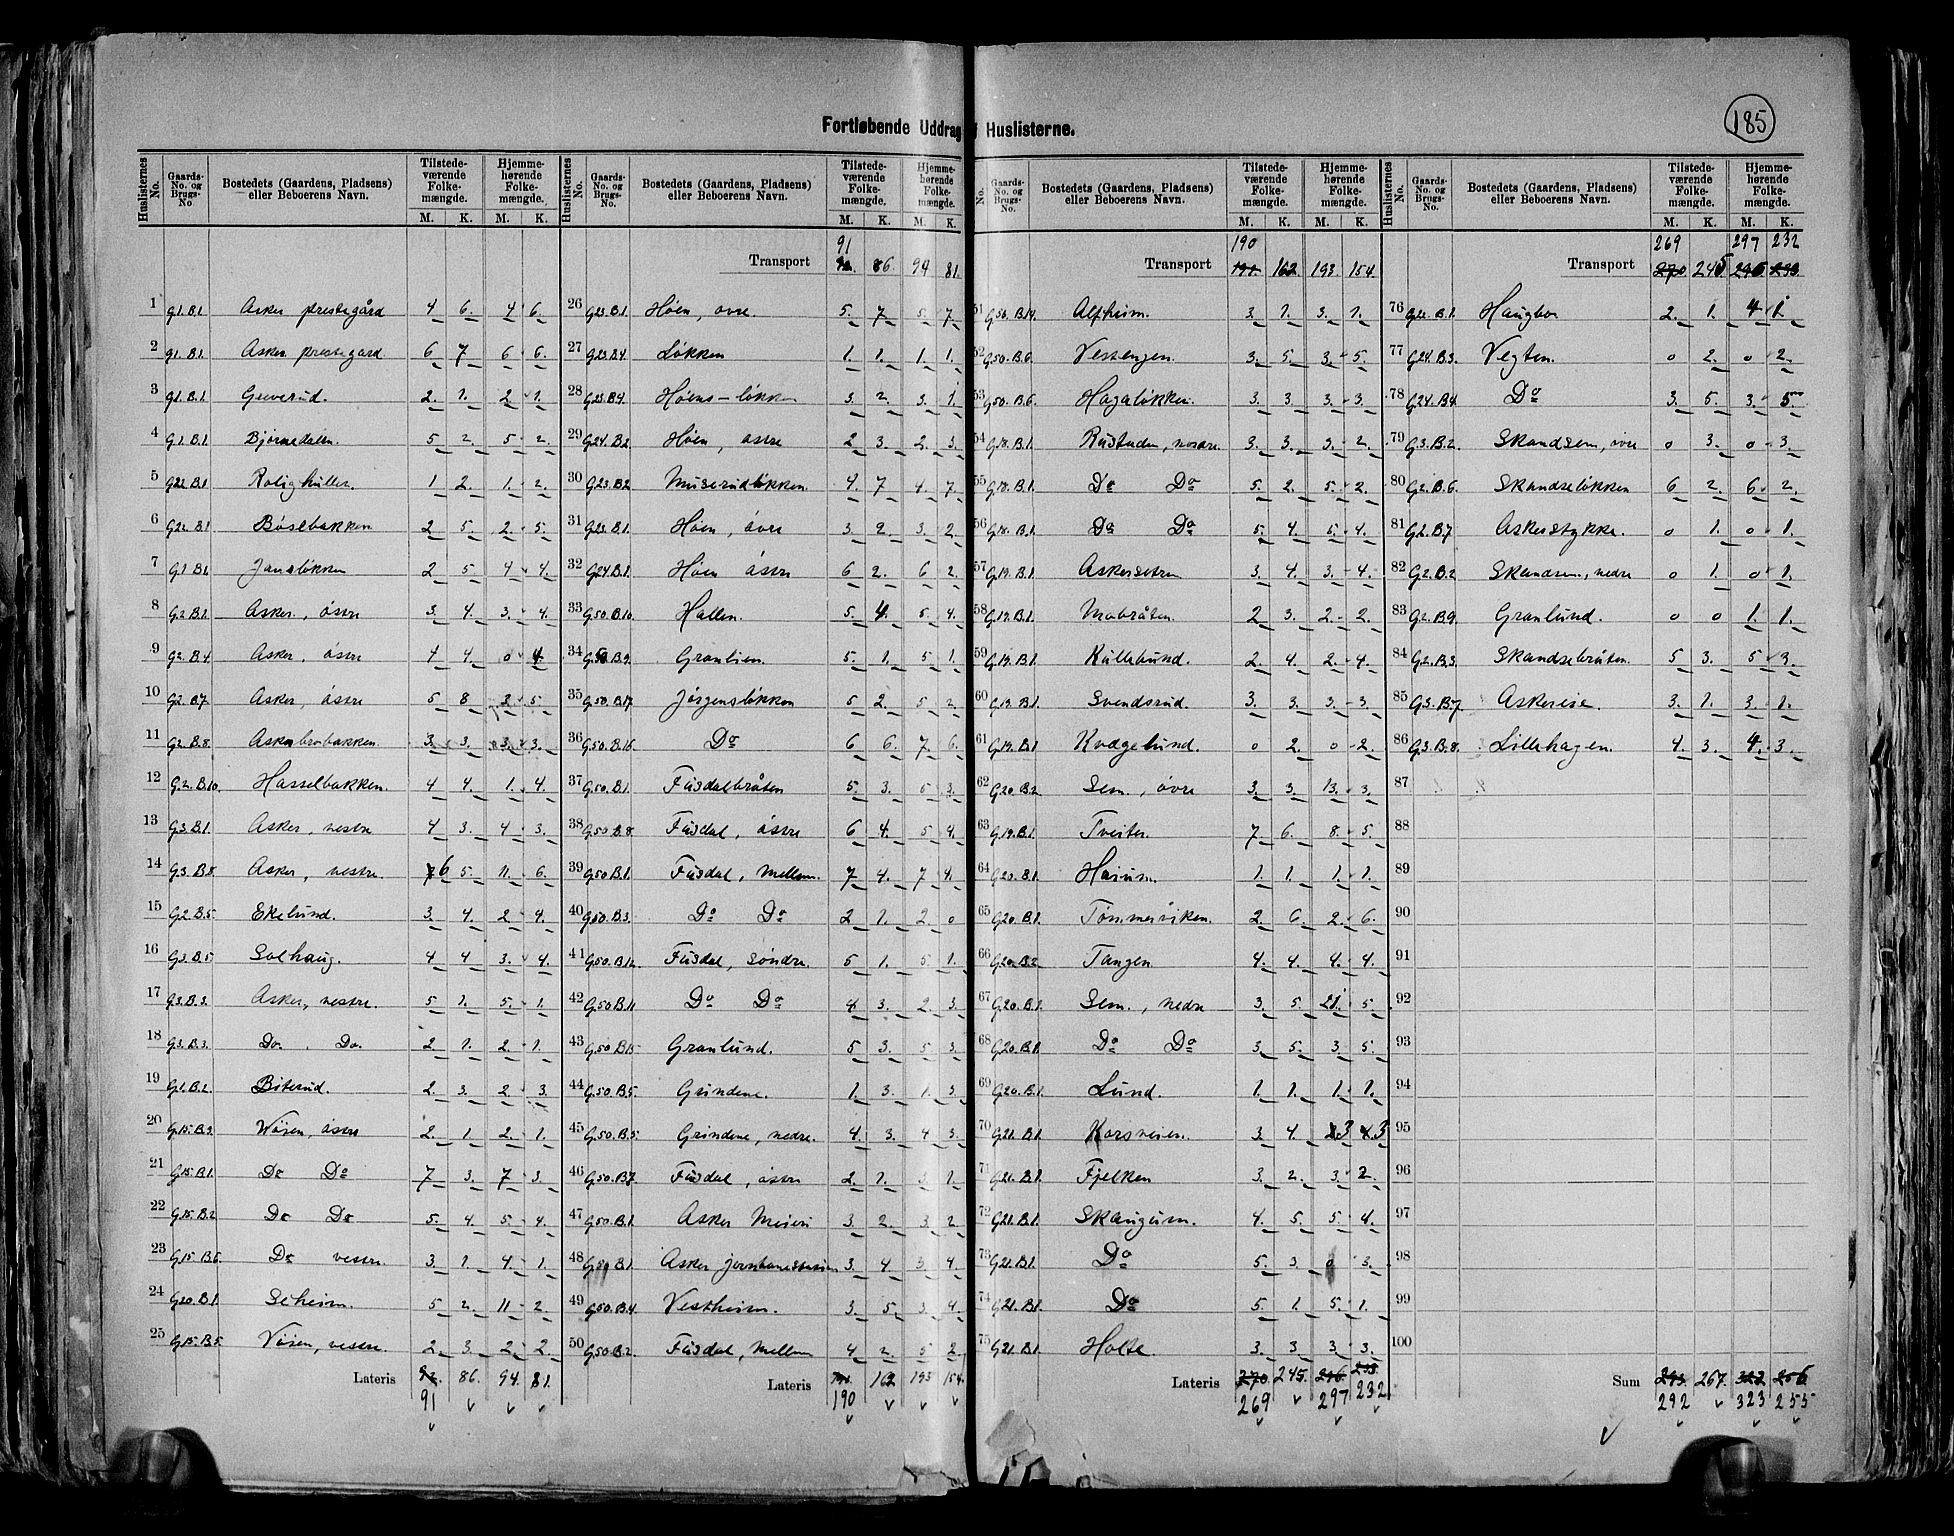 185
Fortløbende Uddrag Huslisterne.
Huslisternes No. Gaards-No. og Brugs-No Bostedets (Gaardens, Pladsens) eller Beboerens Navn. Tilstedeværende Folkemængde. M. K. Hjemmehørende Folkemængde. M. K.
Transport
1 G1.B.1 Asker prestegård 4 6. 4 6.
2 G1.B.1. Asker prestegård 6 7 6 6.
3 G1.B.1 Greverud. 2. 1. 2 1.
4 G.1.B.1 Bjørnedalen. 5 2. 5 2.
5 G22.B.1 Rolighullet. 1 2. 1. 2.
6 G22.B.1 Bøslebakken 2 5. 2. 5.
7 G.1.B.1. Jansløkken 2 5. 4 4.
8 G.2.B.1. Asker, østre 3. 4. 3. 4.
9 G2.B.4 Asker, østre 4. 0 4.
10 G2.B.7. Asker, østre 5 8 3. 5.
11 G2.B.8. Askerbrobakken. 3. 3. 3. 3.
12 G.2.B.10. Hasselbakken. 4 4. 1. 4.
13 G.3.B.1. Asker, vestre 4 3. 4 3.
14 G.3.B.8. Asker, vestre. 6 5. 11. 6.
15 G2.B.5. Ekelund. 3. 4. 2 4.
16 G.3.B.5 Solhaug. 4 4 3. 4.
17 G.3.B.3. Asker, vestre. 5 1. 5. 1.
18 G.3.B.3. Do. Do. 2 1. 2 1.
19 G1.B.2. Biterud. 2 3. 2. 3.
20 G.15.B.9. Vøien, østre 2. 1. 2. 1.
21 G.15.B.1. Do Do 7 3. 7 3.
22 G.15.B.2 Do Do 5. 4. 5. 4.
23 G.15.B.6. Do vestre. 3. 1. 4. 1.
24 G20.B.1. Solheim. 5 2. 11 2.
25 G.15.B.5. Vøien, vestre. 2 3. 2 2.
Lateris 86. 94. 81.
91
Huslisternes No. Gaards-No. og Brugs-No. Bostedets (Gaardens, Pladsens) eller Beboerens Navn. Tilstedeværende Folkemængde. M. K. Hjemmehørende Folkemængde. M. K.
91
Transport 86. 94 81.
26 G23.B.1. Høen, øvre. 5. 7. 5. 7
27 G23.B.4. Løkken 1. 1. 1. 1.
28 G23.B.9. Høens-løkken 3. 2. 3. 1.
29 G24.B.2 Høen, østre 2 3. 2. 3.
30 G23.B.2 Muserudløkken. 4. 7 4. 7.
31 G23.B.1. Høen, øvre 3 2. 3. 2.
32 G24.B.1. Høen østre 6 2. 6 2.
33 G.50.B.10. Hallen. 5 4. 5. 4.
34 Granlien. 5. 1. 5 1.
35 G.50.B.17. Jørgensløkken 5 2. 5 2.
36 G.50.B.16. Do 6 6. 7 6.
37 G.50.B.1. Fusdalbråten 5. 3. 5 3.
38 G.50.B.8. Fusdal, østre 6 4. 5 4.
39 G50.B.1. Fusdal, mellem. 7 4. 7 4.
40 G50.B.3. Do Do 2 1. 2. 0
41 G50.B.12. Fusdal, søndre. 5 1. 5. 1.
42 G.50.B.11. Do Do 4 3. 2. 3.
43 G.50.B.15. Granlund. 5 3. 5 3.
44 G.50.B.5. Grindene. 1. 3. 1. 3.
45 G.50.B.5. Grindene, nedre. 4. 3. 4 3.
46 G.50.B.7. Fusdal, østre 2. 1. 3. 1.
47 G.50.B.1. Asker Meieri 3. 2. 3. 2
48 Asker jernbanestasion 3. 4 3. 4.
49 G50.B.4. Vestheim. 3. 5. 3. 4
50 G.50.B.2. Fusdal, mellem 4 2. 5 2.
Lateris 162 193 154
190
No. Gaards-No. og Brugs-No. Bostedets (Gaardens, Pladsens) eller Beboerens Navn. Tilstedeværende Folkemængde. M. K. Hjemmehørende Folkemængde. M. K.
190
Transport 162. 193. 154.
51 G.50.B.14. Alfheim. 3. 1. 3. 1.
52 G.50.B.6. Vestengen. 3. 5. 3. 5.
53 G50.B.6. Hagaløkken. 3 3 3. 3.
54 G.18.B.1. Rustaden, nordre. 3. 3. 3. 2.
55 G.18.B.1. Do Do 5. 2. 5. 2.
56 G.18.B.1. Do Do 5. 4. 5. 4.
57 G.19.B.1. Askersetra 3. 4. 3. 4.
58 G.19.B.1. Mobråten. 2 3. 2. 2.
59 G.19.B.1. Kullebund. 2 4. 2. 4.
60 G.19.B.1. Svendsrud. 3. 3. 3. 3.
61 G.19.B.1 Kvægelund. 0 2. 0 2.
62 G20.B.2 Sem., øvre 3. 3. 13. 3.
63 G.19.B.1. Tveiter. 7 6. 8. 5.
64 G20.B.1. Hasum. 1. 1. 1. 1.
65 G20.B.1. Tømmerviken. 2. 6. 2. 6.
66 G20.B.2. Tangen. 4. 4. 4. 4.
67 G20.B.1. Sem., nedre 3. 5. 21. 5.
68 G20.B.1. Do Do 3. 5. 3 5.
69 G20.B.1. Lund. 1. 1. 1. 1.
70 G21.B.1. Korsveien. 3. 4. 3 3
71 G21.B.1. Fjelken 3. 2. 3. 2.
72 G21.B.1. Skaugum. 4. 5. 5. 4.
73 G21.B.1. Do 5. 3. 0 3.
74 G21.B.1. Do 5. 1. 5. 1.
75 G21.B.1. Holte. 3. 3. 3 3.
Lateris 245.
269 297 232
Huslisternes No. Gaards-No. og Brugs-No. Bostedets (Gaardens, Pladsens) eller Beboerens Navn. Tilstedeværende Folkemængde. M. K. Hjemmehørende Folkemængde. M. K.
269 297 232
Transport 245
76 G22.B.1. Haugbo 2. 1. 4 1.
77 G24.B.3. Vegten. 0 2. 0 2.
78 G24.B.4. Do 3. 5. 3. 5
79 G.3.B.2. Skandsen, øvre 0 3. 0 3.
80 G2.B.6. Skandseløkken 6 2. 6 2.
81 G2.B.7 Askerstykke. 0 1. 0 1.
82 G2.B.2 Skandsen, nedre 0 1. 0 1.
83 G2.B.9. Granlund. 0 0 1. 1.
84 G2.B.3. Skandsebråten. 5 3. 5 3.
85 G3.B.7. Askereie. 3. 1. 3. 1.
86 G.3.B.8. Lillehagen. 4. 3. 4. 3.
87
88
89
90
91
92
93
94
95
96
97
98
99
100
Sum 267.
292 323 255